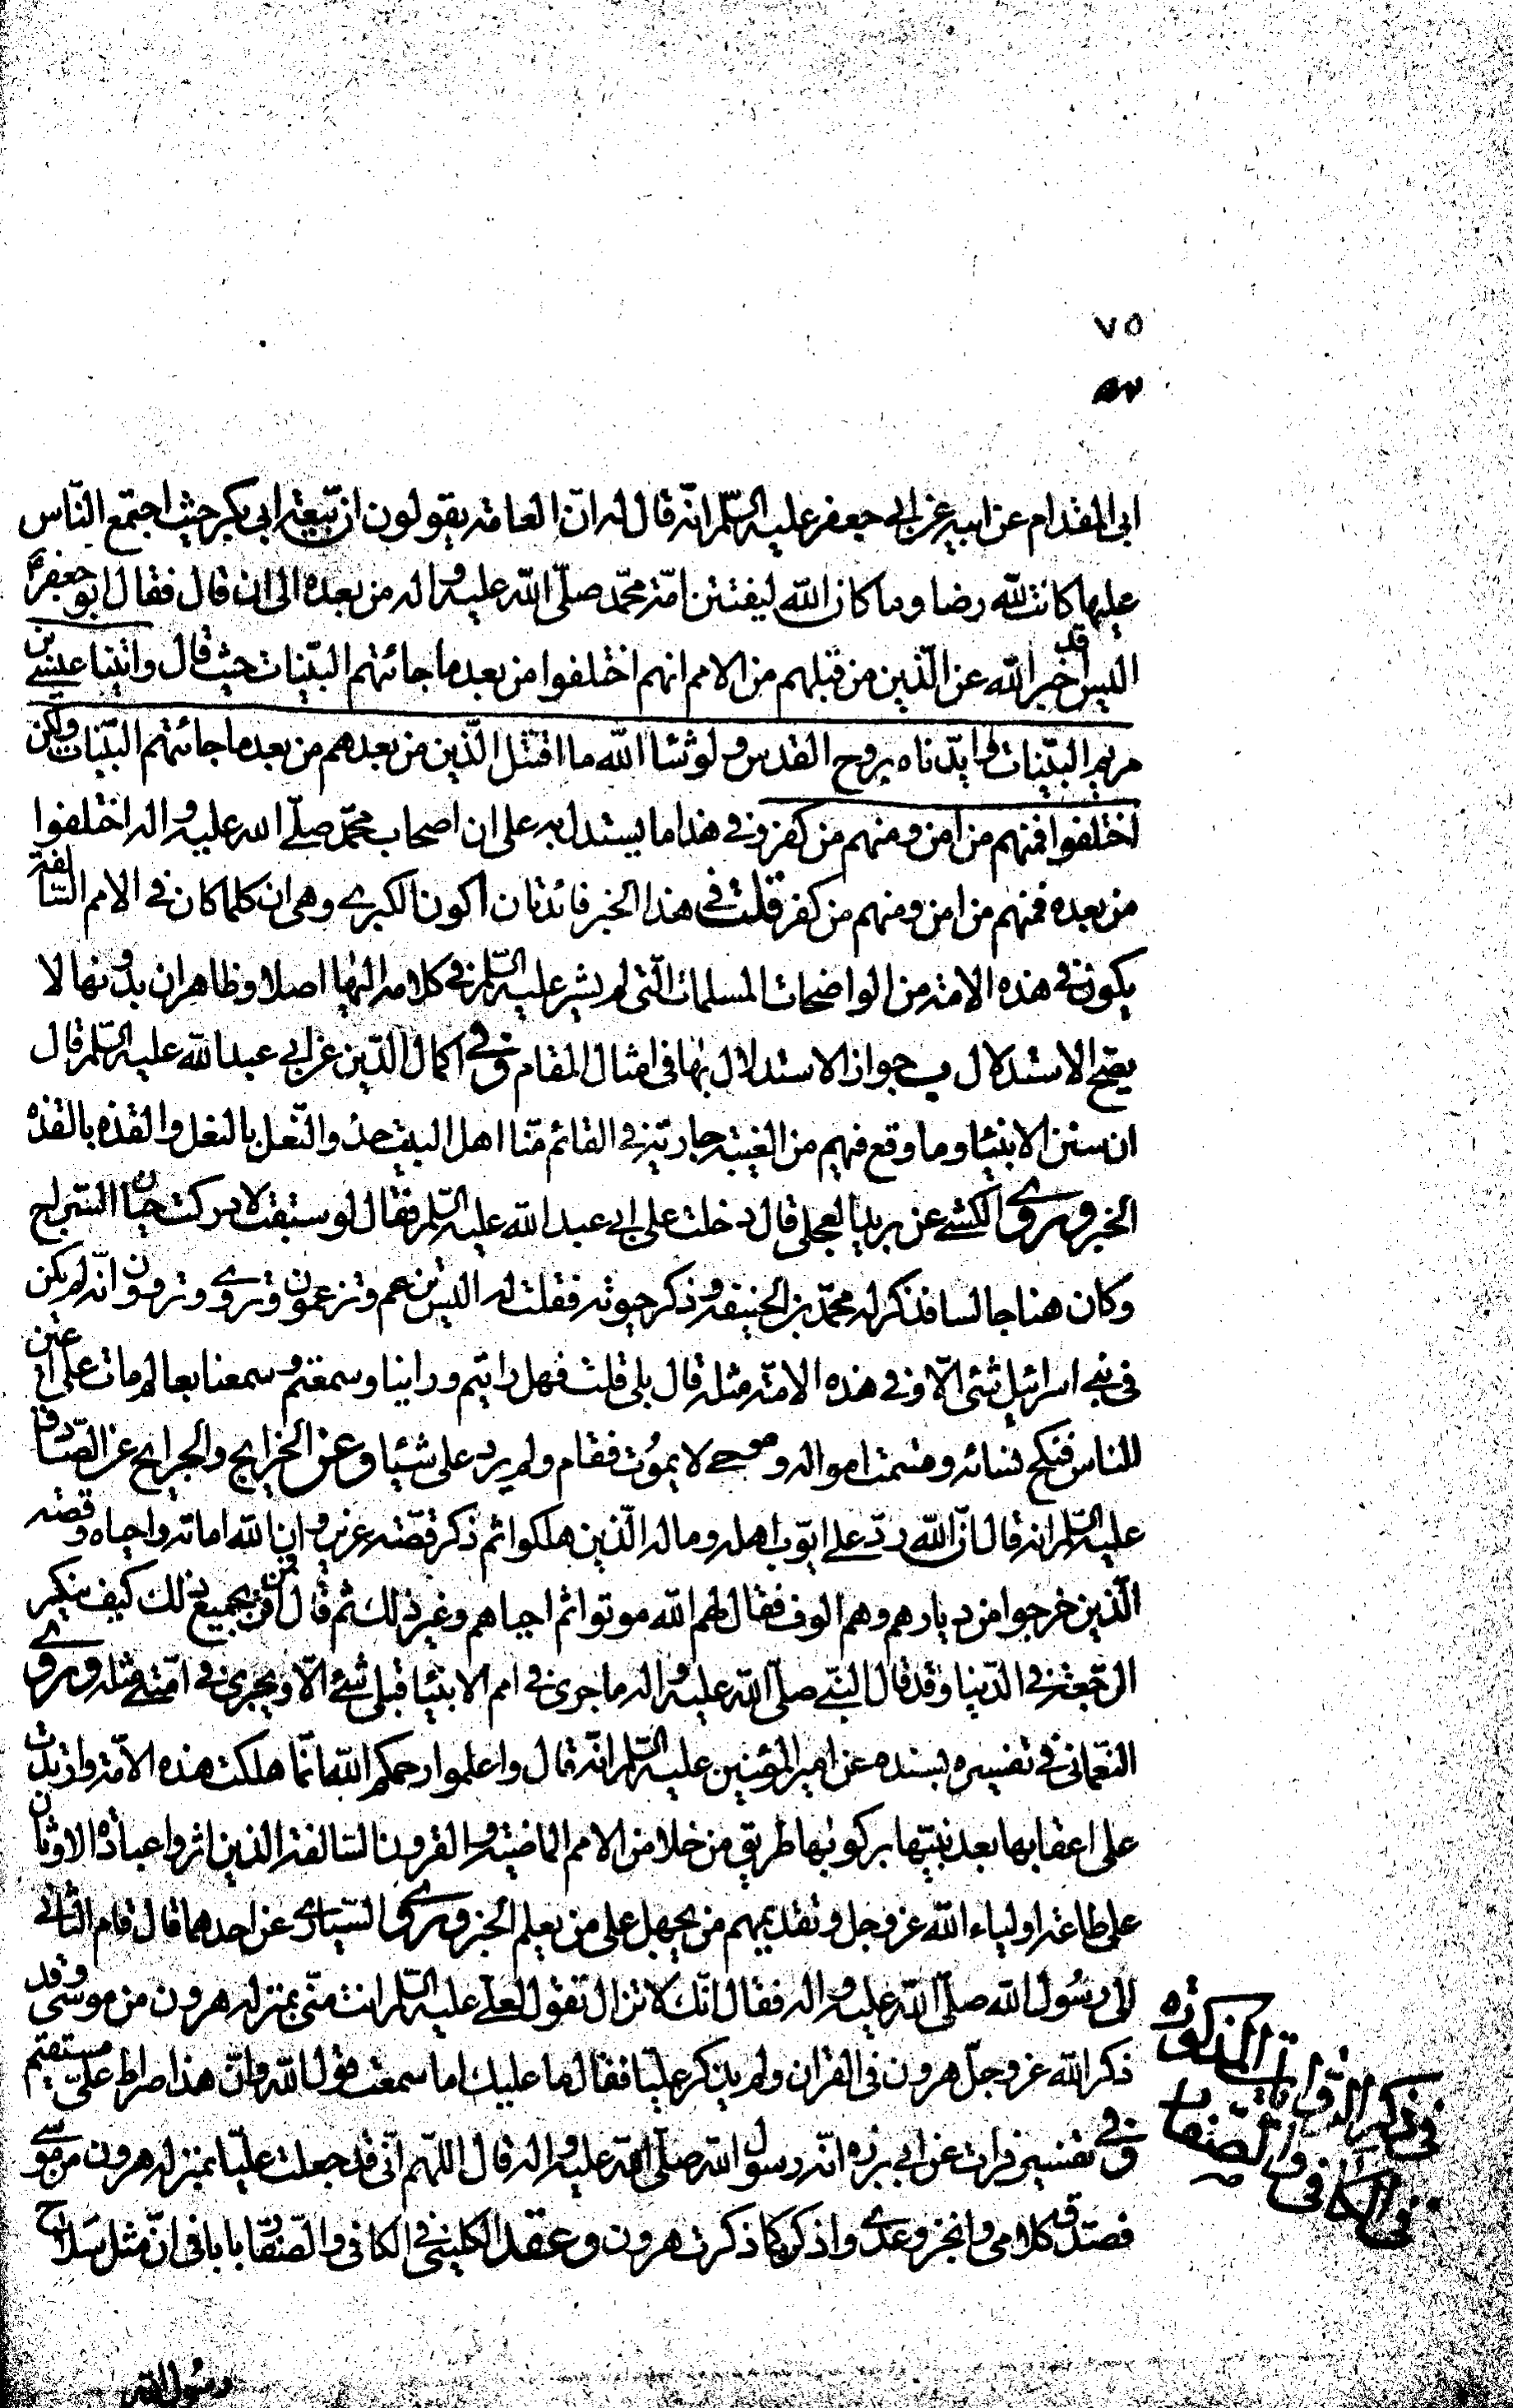 ٧٥
ابی المقدام عن ابیه عن ابی جعفر علیه السّلم انّه قال له انّ العامّة یقولون ان بیعة ابی بکر حیث اجتمع النّاس
علیها کانت للّه رضا و ما کان اللّه لیفتن امّة محمّد صلّی اللّه علیه و اله من بعده الی ان قال فقال ابو جعفر ع
الیس قد اخبر اللّه عن الّذین من قبلهم من الامم انهم اختلفوا من بعد ما جائتهم البیّنات حیث قال و اتینا عیسی بن
مریم البیّنات و ایّدناه بروح القدس و لو شاء اللّه ما اقتتل الّذین من بعدهم من بعد ما جائتهم البیّنات و لکن
اختلفوا فمنهم من امن و منهم من کفر و فی هذا ما یستدل به علی ان اصحاب محمّد صلّی الله علیه و اله اختلفوا
من بعده فمنهم من امن و منهم من کفر قلت فی هذا الخبر فائدتان ا کون الکبری و هی ان کلما کان فی الامم السّالفة
یکون فی هذه الامّة من الواضحات المسلمات الّتی لم یشر علیه السّلم فی کلامه الیها اصلا و ظاهر ان بدونها لا
یصّح الاستدلال ب جواز الاستدلال بها فی امثال المقام و فی اکمال الدّین عن ابی عبد اللّه علیه السّلم قال
ان سنن الانبیاء و ما وقع فیهم من الغیبة جاریة فی القائم منّا اهل البیت حذو النّعل بالنعل و القذه بالقذه
الخبر و روی الکشی عن برید العجلی قال دخلت علی ابی عبد اللّه علیه السّلم فقال لو سبقت لادرکت حیان السّراج
و کان هنا جالسا فذکر له محمّد بن الحنیفه و ذکر حیوته فقلت له الیس نزعم و تزعمون و نروی و تروون انّه لم یکن
فی بنی اسرائیل شئ الّا و فی هذه الامّة مثله قال بلی قلت فهل راینا و رایتم و سمعتم و سمعنا بعالم مات علی اعین
الناس فنکح نسائه و قسمت امواله و هو حی لا یموت فقام و لم یرد علی شیئا و عن الخرایج و الجرایح عن الصّادق
علیه السّلم انه قال انّ اللّه ردّ علی ایّوب اهله و ماله الّذین هلکوا ثم ذکر قصّة عزیر و ان اللّه اماته و احیاه و قصّة
الّذین خرجوا من دیارهم و هم الوف فقال لهم اللّه موتوا ثم احیاهم و غیر ذلک ثم قال فمن اقرّ بجمیع ذلک کیف ینکر
الرّجعة فی الدّنیا و قد قال النبّی صلّی اللّه علیه و اله ما جری فی امم الانبیاء قبلی شئ الّا و یجری فی امّتی مثله و روی
النّعمانی فی تفسیره بسنده عن امیر المؤمنین علیه السّلم انّه قال و اعلموا رحمکم اللّه انّما هلکت هذه الامّة و ارتدت
علی اعقابها بعد نبیّها برکوبها طریق من خلا من الامم الماضیة و القرون السّالفة الذین اثروا عبادة الاوثان
علی طاعة اولیاء اللّه عز و جل و تقدیمهم من یجهل علی من یعلم الخبر و روی السّیاری عن احدهما قال قام الثّانی
الی رسول اللّه صلّی اللّه علیه و اله فقال انّک لا تزال تقول لعلی علیه السّلم انت منّی بمنزلة هرون من موسی و قد
ذکر اللّه عز و جلّ هرون فی القران و لم یذکر علیّا فقال ما علیک اما سمعت قول اللّه و انّ هذا صراط علیّ مستقیم
و فی تفسیر فرات عن ابی برزه انّه رسول اللّه صلّی اللّه علیه و اله قال اللّهم انّی قد جعلت علیّا بمنزلة هرون من موسی
فصدّق کلامی و انجز وعدی و اذکره کما ذکرت هرون و عقد الکلینی فی الکافی و الصّفار بابا فی انّ مثل سلاح
فی ذکر الرّوایات المذکوره
فی الکافی و الصّفار
رسول اللّه